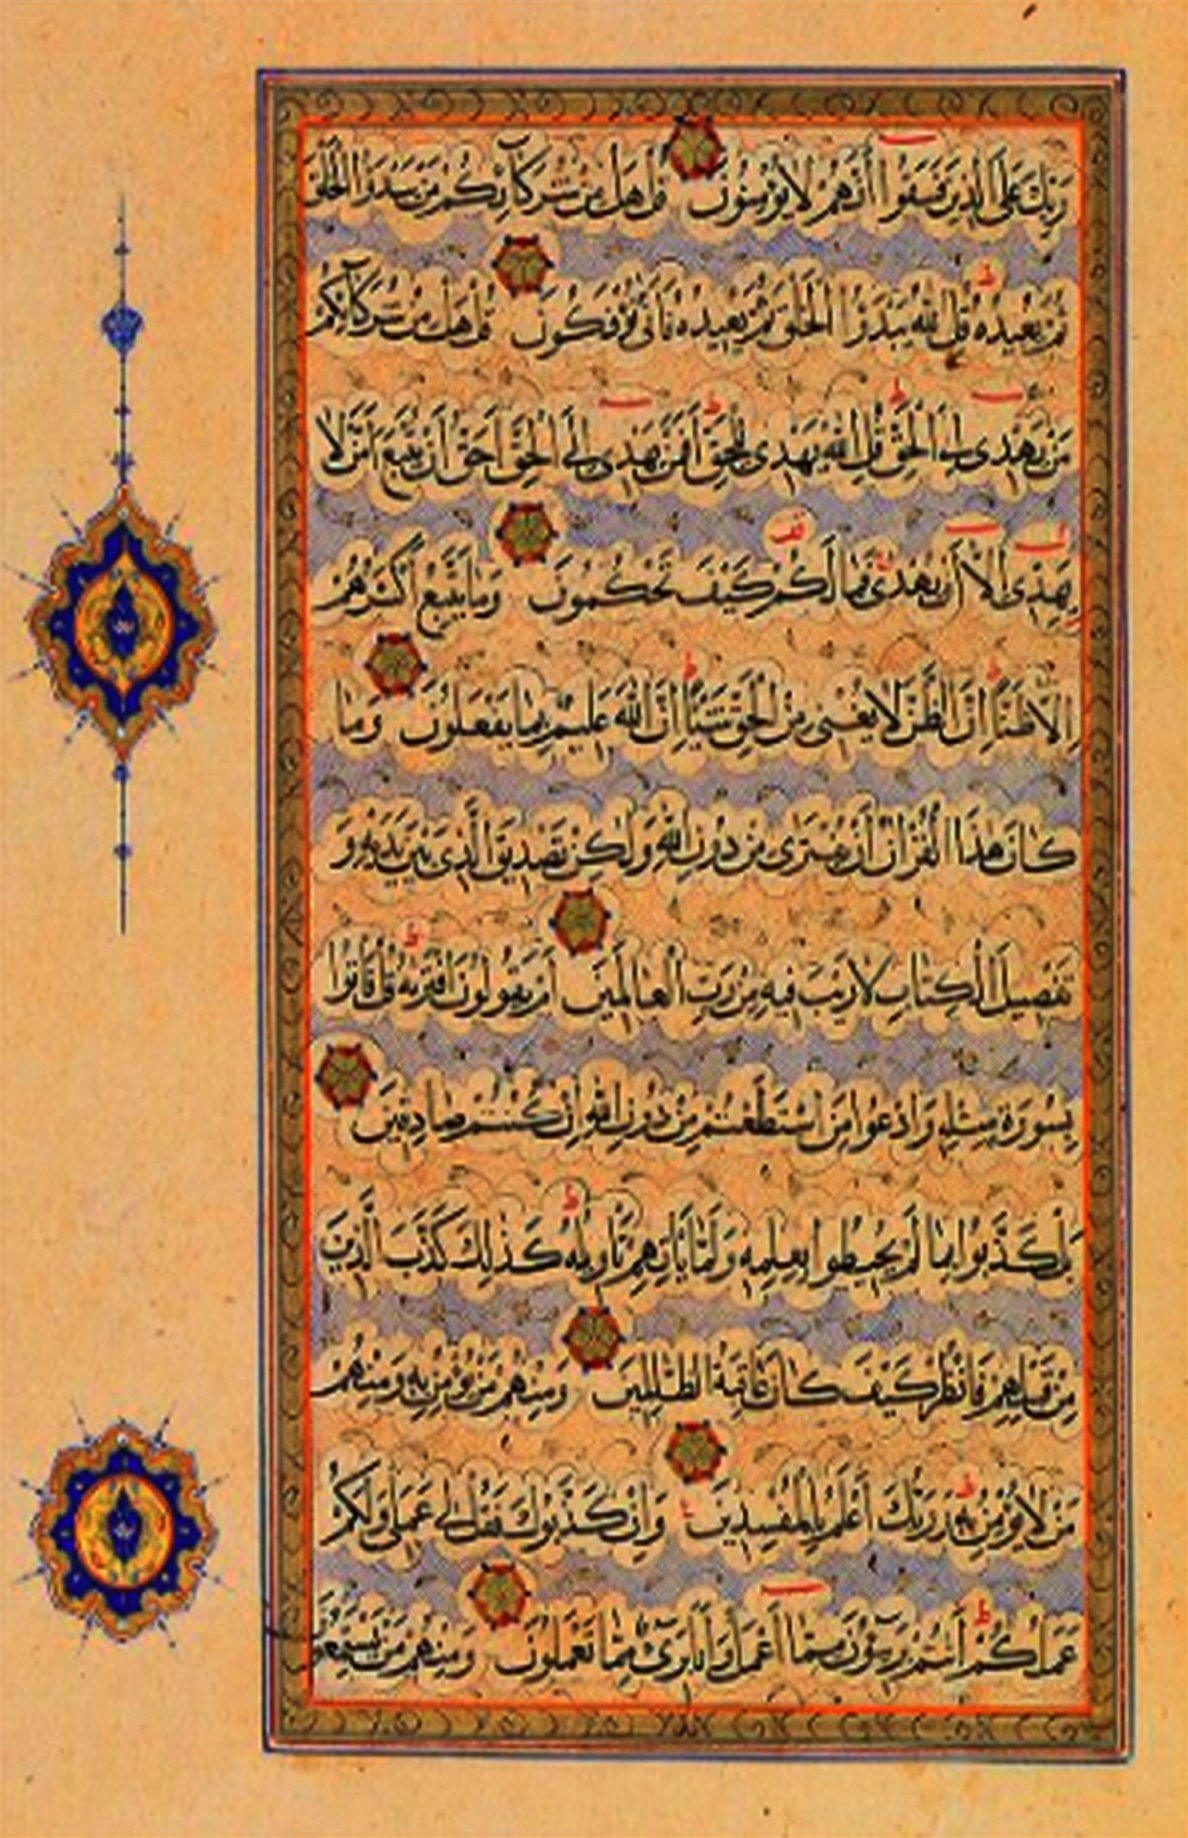 رَبِّكَ عَلَى الَّذِينَ فَسَقُوا أَنَّهُمْ لَا يُؤْمِنُونَ قُلْ هَلْ مِنْ شُرَكَائِكُمْ مَنْ يَبْدَؤُا الْخَلْقَ
ثُمَّ يُعِيدُهُ قُلِ اللَّهُ يَبْدَؤُا الْخَلْقَ ثُمَّ يُعِيدُهُ فَأَنَّى تُؤْفَكُونَ قُلْ هَلْ مِنْ شُرَكَائِكُمْ
مَنْ يَهْدِي إِلَى الْحَقِّ قُلِ اللَّهُ يَهْدِي لِلْحَقِّ أَفَمَنْ يَهْدِي إِلَى الْحَقِّ أَحَقُّ أَنْ يُتَّبَعَ أَمَّنْ لَا
يَهِدِّي إِلَّا أَنْ يُهْدَى فَمَا لَكُمْ كَيْفَ تَحْكُمُونَ وَمَا يَتَّبِعُ أَكْثَرُهُمْ
إِلَّا ظَنًّا إِنَّ الظَّنَّ لَا يُغْنِي مِنَ الْحَقِّ شَيْئًا إِنَّ اللَّهَ عَلِيمٌ بِمَا يَفْعَلُونَ وَمَا
كَانَ هٰذَا الْقُرْآنُ أَنْ يُفْتَرَى مِنْ دُونِ اللَّهِ وَلٰكِنْ تَصْدِيقَ الَّذِي بَيْنَ يَدَيْهِ وَ
تَفْصِيلَ الْكِتَابِ لَا رَيْبَ فِيهِ مِنْ رَبِّ الْعَالَمِينَ أَمْ يَقُولُونَ افْتَرَيهُ قُلْ فَأْتُوا
بِسُورَةٍ مِثْلِهِ وَادْعُوا مَنِ اسْتَطَعْتُمْ مِنْ دُونِ اللَّهِ إِنْ كُنْتُمْ صَادِقِينَ
بَلْ كَذَّبُوا بِمَا لَمْ يُحِيطُوا بِعِلْمِهِ وَلَمَّا يَأْتِهِمْ تَأْوِيلُهُ كَذٰلِكَ كَذَّبَ الَّذِينَ
مِنْ قَبْلِهِمْ فَانْظُرْ كَيْفَ كَانَ عَاقِبَةُ الظَّالِمِينَ وَمِنْهُمْ مَنْ يُؤْمِنُ بِهِ وَمِنْهُمْ
مَنْ لَا يُؤْمِنُ بِهِ وَرَبُّكَ أَعْلَمُ بِالْمُفْسِدِينَ وَإِنْ كَذَّبُوكَ فَقُلْ لِي عَمَلِي وَلَكُمْ
عَمَلُكُمْ أَنْتُمْ بَرِيئُونَ مِمَّا أَعْمَلُ وَأَنَا بَرِيءٌ مِمَّا تَعْمَلُونَ وَمِنْهُمْ مَنْ يَسْتَمِعُونَ